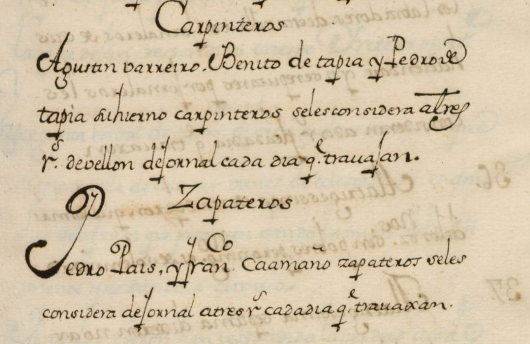 Carpinteros
Agustin varreiro, Benito de tapia y Pedro de
tapia su hierno carpinteros seles considera a tres
rˢ. de vellon de jornal cada dia qᵉ travajan.
Zapateros
Pedro Pais, y franᶜᵒ Caamaño zapateros seles
considera de jornal a tres rˢ cada dia qᵉ travaxan.